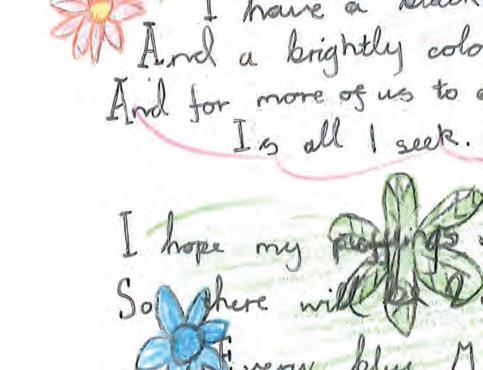 I have a
And a brightly
And for more of us to
Is all I seek.
I hope my
So there will
Every blue M